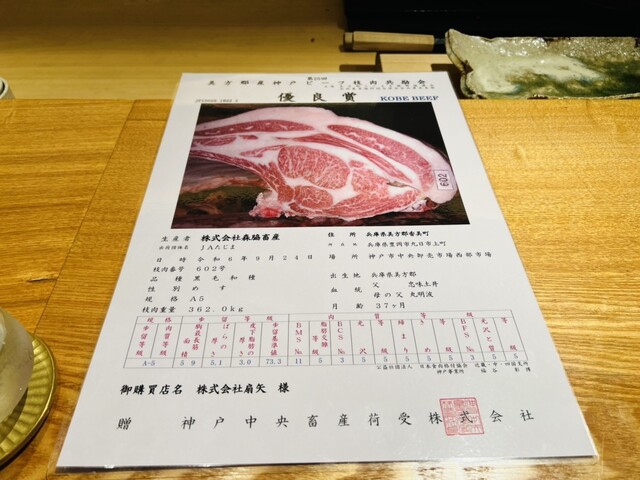 美方郡産神戸ビーフ枝肉共励会
優良賞
KOBE BEEF
602
生産者 株式会社森脇畜産
住所 兵庫県美方郡香美町
出荷団体名 JAたじま
兵庫県豊岡市九日市上町
日時 令和6年9月24日 場所 神戸市中央卸売市場西部市場
枝肉番号 602号
品種 黒毛和種 出生地 兵庫県美方郡
性別 めす 血統 父 忠味土井
規格 A5 母の父 丸明波
枝肉重量 362.0kg 月齢 37ヶ月
規格 歩留等級 肉質等級
歩留等級 肉質等級 胸最長筋面積 ばらの厚さ 皮下脂肪の厚さ 歩留基準値 BMS No. 脂肪交雑 BCS No. 光沢 等級 締まり きめ 等級 BFS No. 光沢と質 等級
A-5 5 9 5.1 3.0 73.3 11 5 3 5 5 5 5 5 3 5 5
公益社団法人 日本食肉格付協会
御購買店名 株式会社扇矢 様
贈 神戸中央畜産荷受株式会社